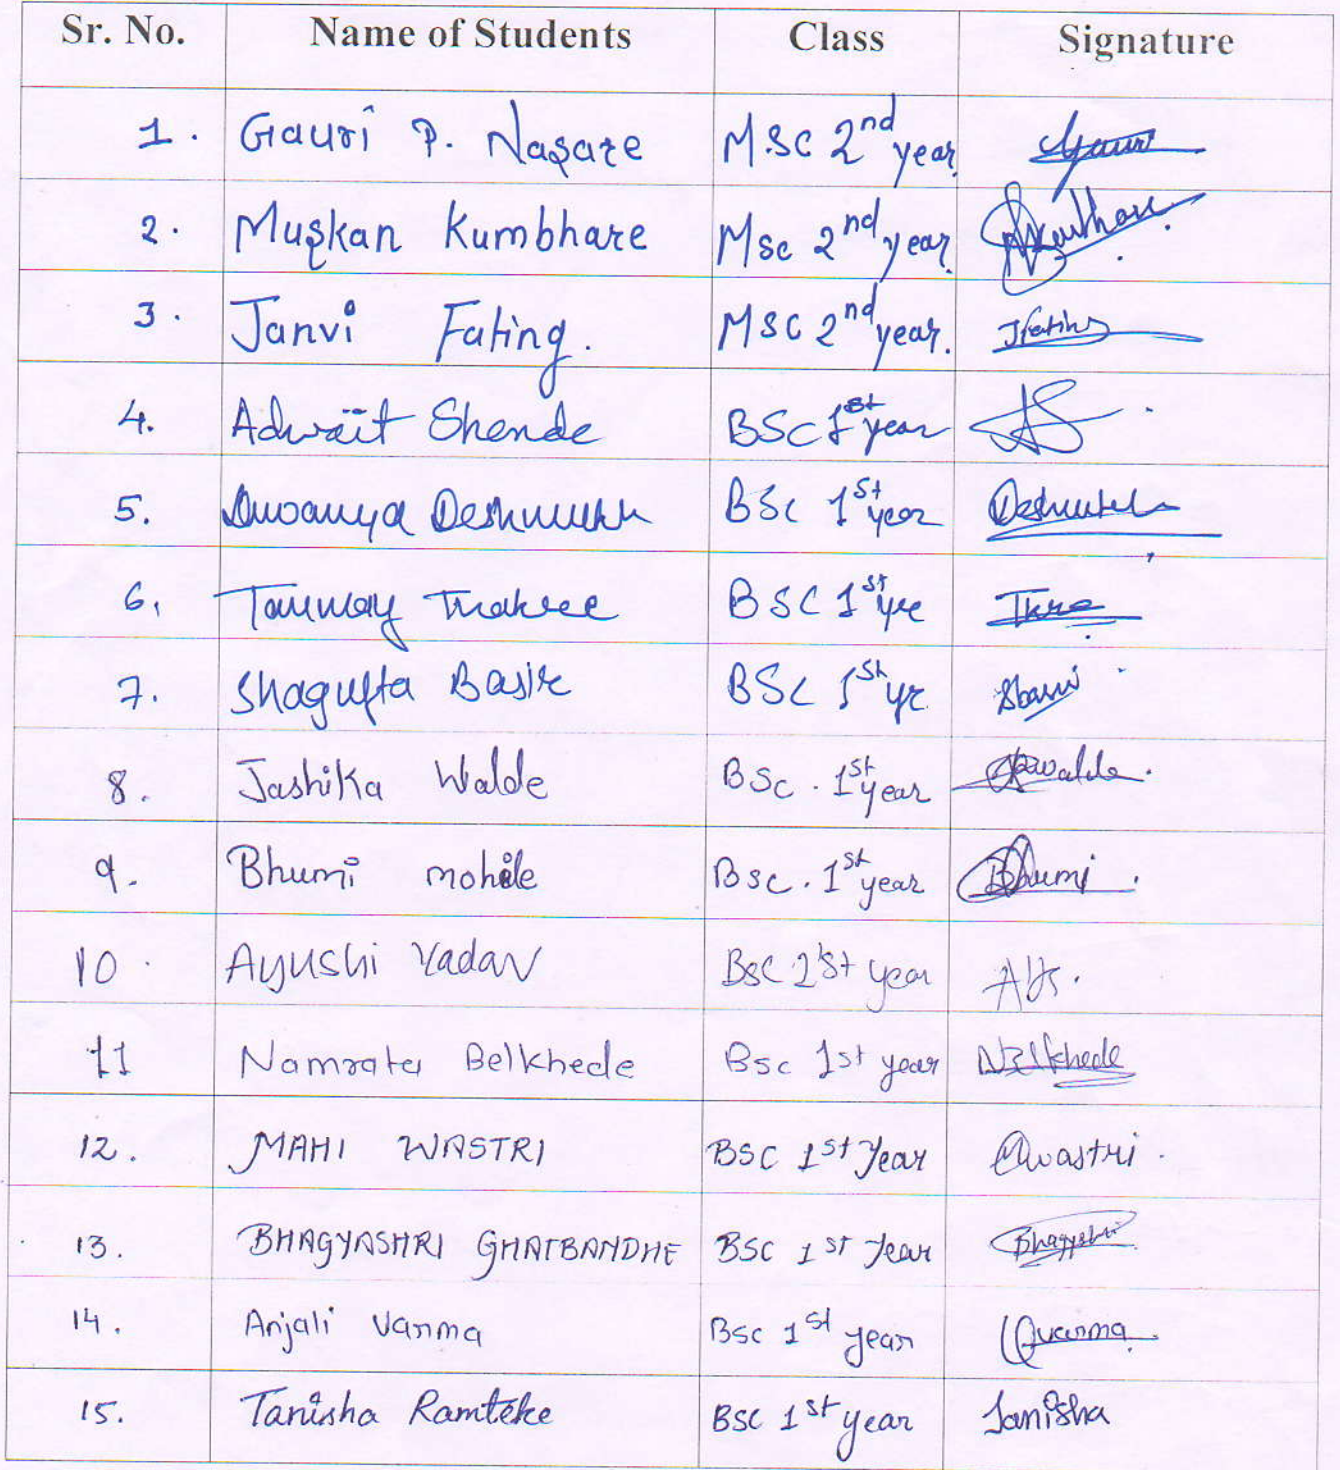 Sr. No. Name of Students Class Signature
1. Gauri P. Nagare M.Sc 2nd year. Gauri
2. Muskan Kumbhare Msc 2nd year.
3. Janvi Fating. MSC 2nd year. JFating
4. Adwait Shende BSC 1st year AS
5. Deshmukh BSc 1st year Deshmukh
6. Tanmay Thakree BSC 1st yre
7. Shagufta Basir BSc 1st yr
8. Jashika Walde BSc. 1st year
9. Bhumi mohile Bsc. 1st year Bhumi
10. Ayushi Yadav Bsc year
11 Namrata Belkhede Bsc 1st year NBelkhede
12. MAHI WASTRI BSC 1st Year Mwastri
13. BHAGYASHRI GHATBANDHE BSC 1ST Year Bhagyashri
14. Anjali Varma BSC 1st year Varma
15. Tanisha Ramteke BSC 1st year Tanisha